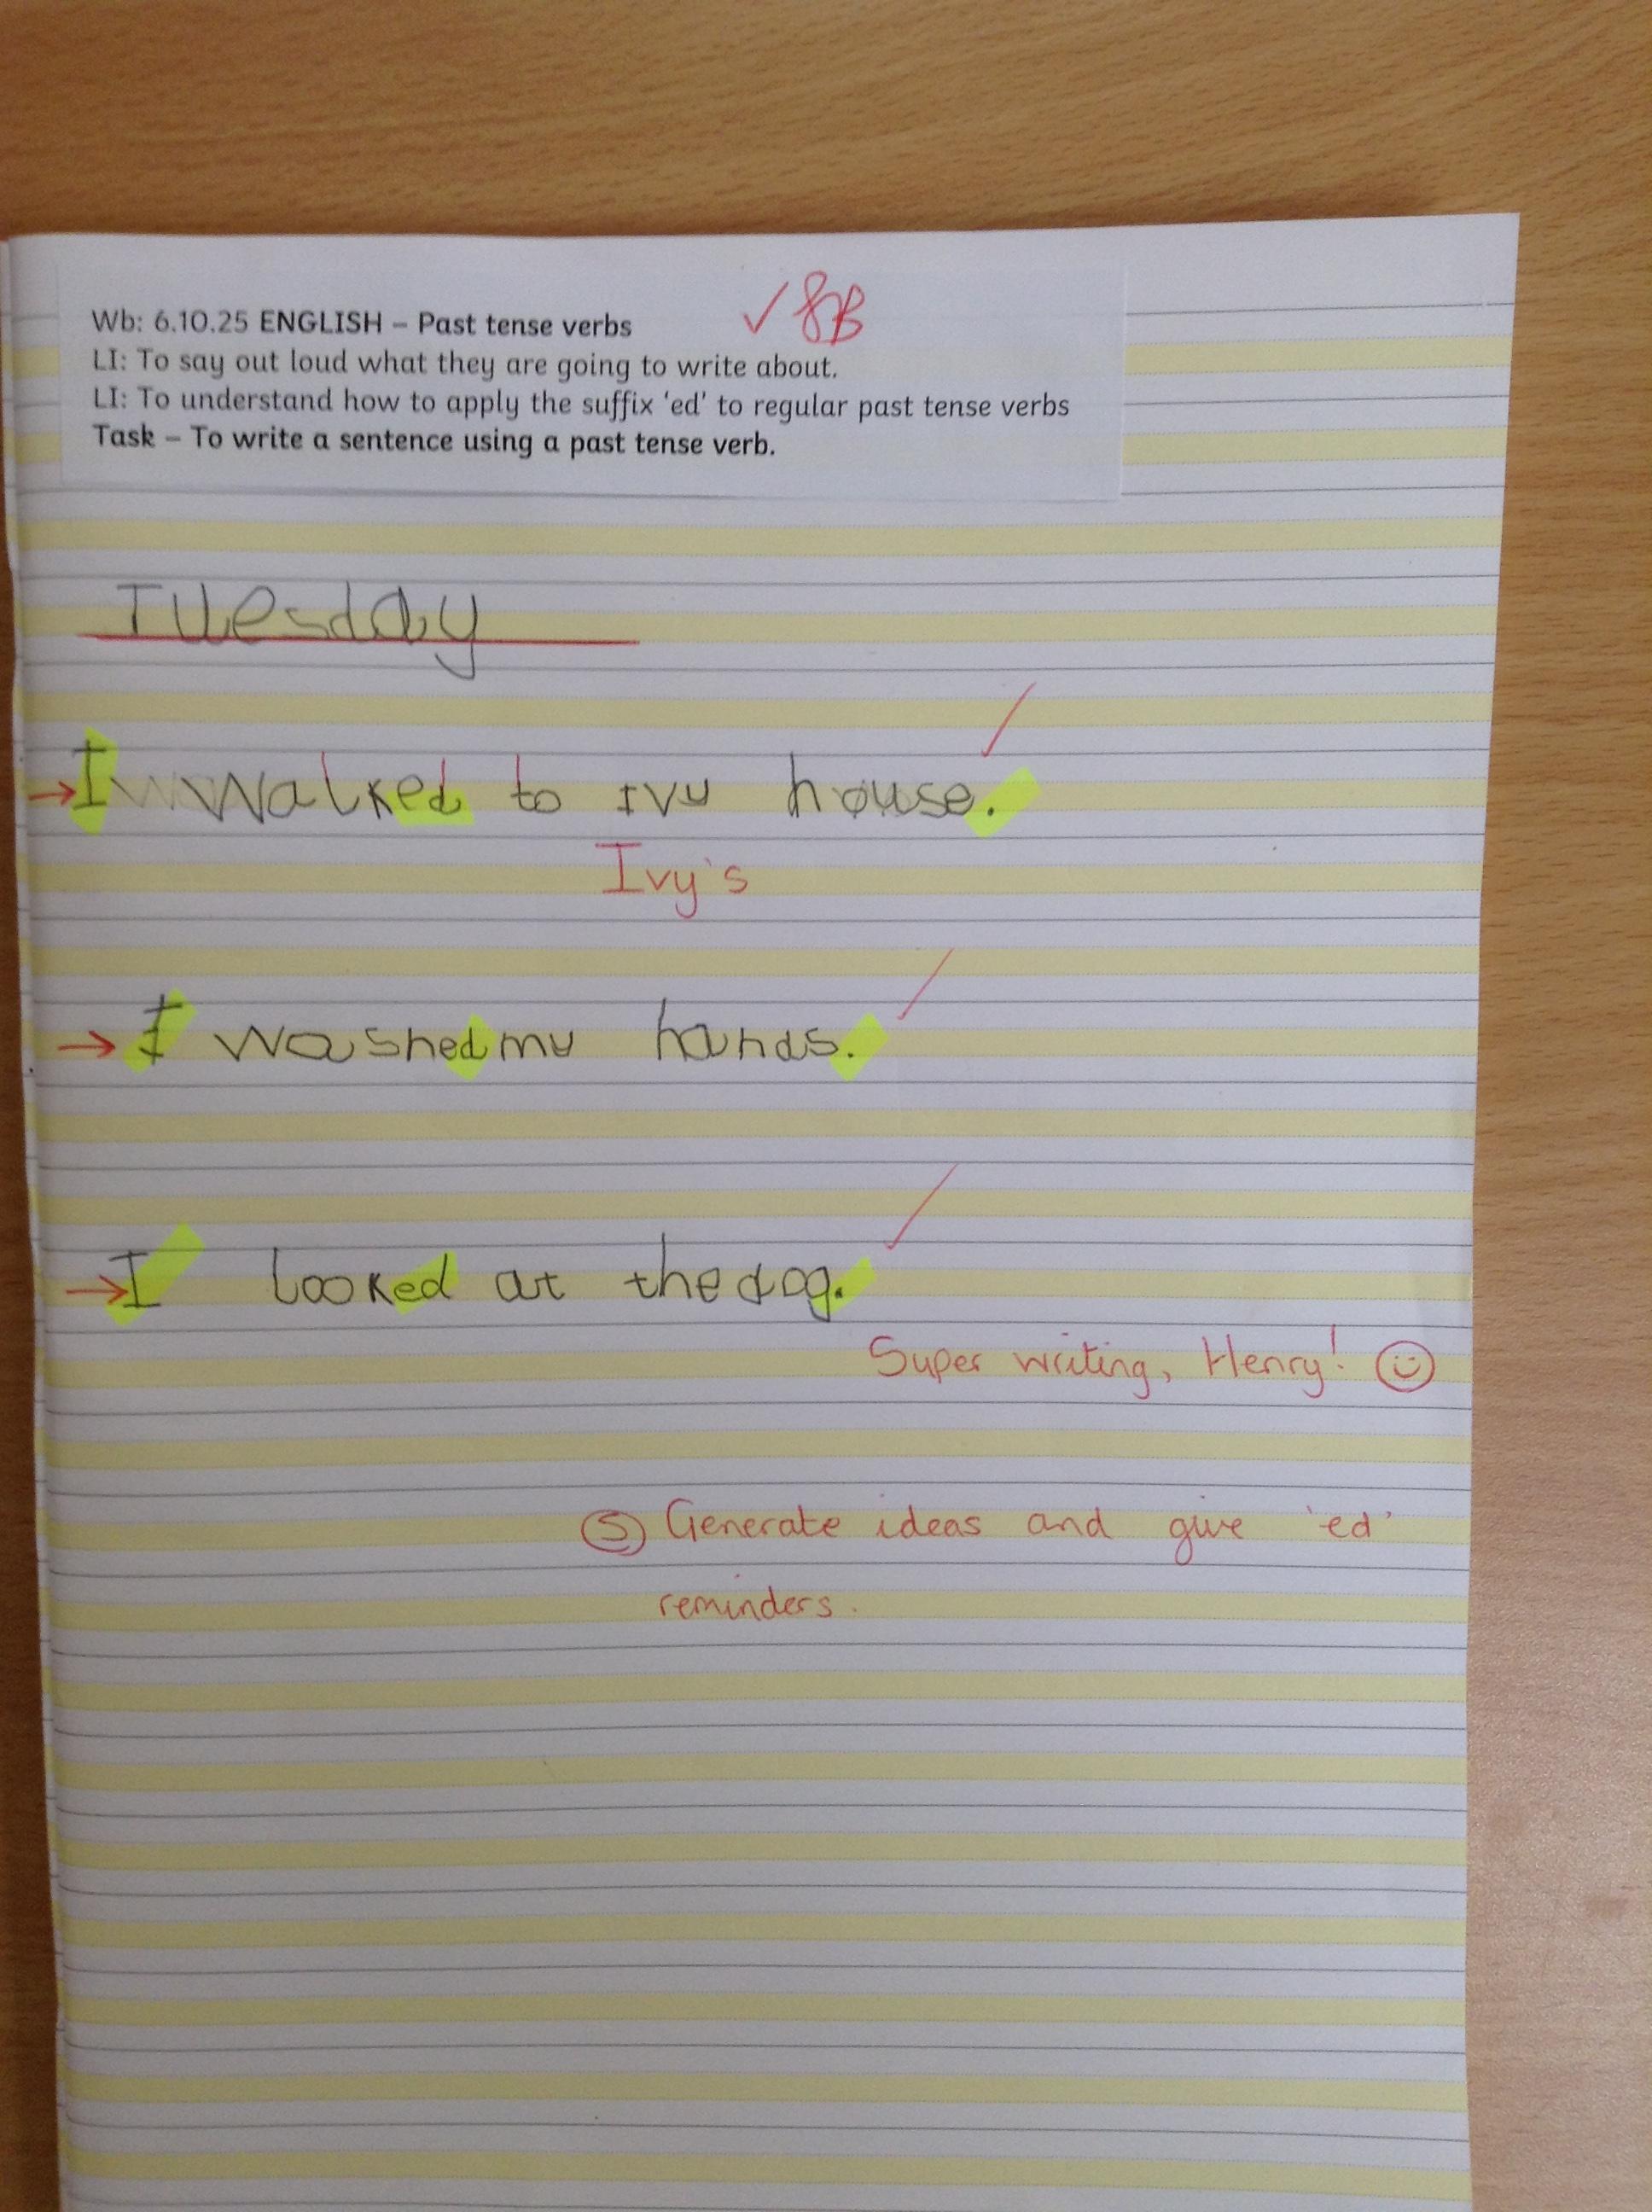 Wb: 6.10.25 ENGLISH – Past tense verbs
LI: To say out loud what they are going to write about.
LI: To understand how to apply the suffix ‘ed’ to regular past tense verbs
Task – To write a sentence using a past tense verb.
Tuesday
I walked to Ivy house.
Ivy's
I washed my hands.
I looked at the dog.
Super writing, Henry!
S Generate ideas and give 'ed'
reminders.